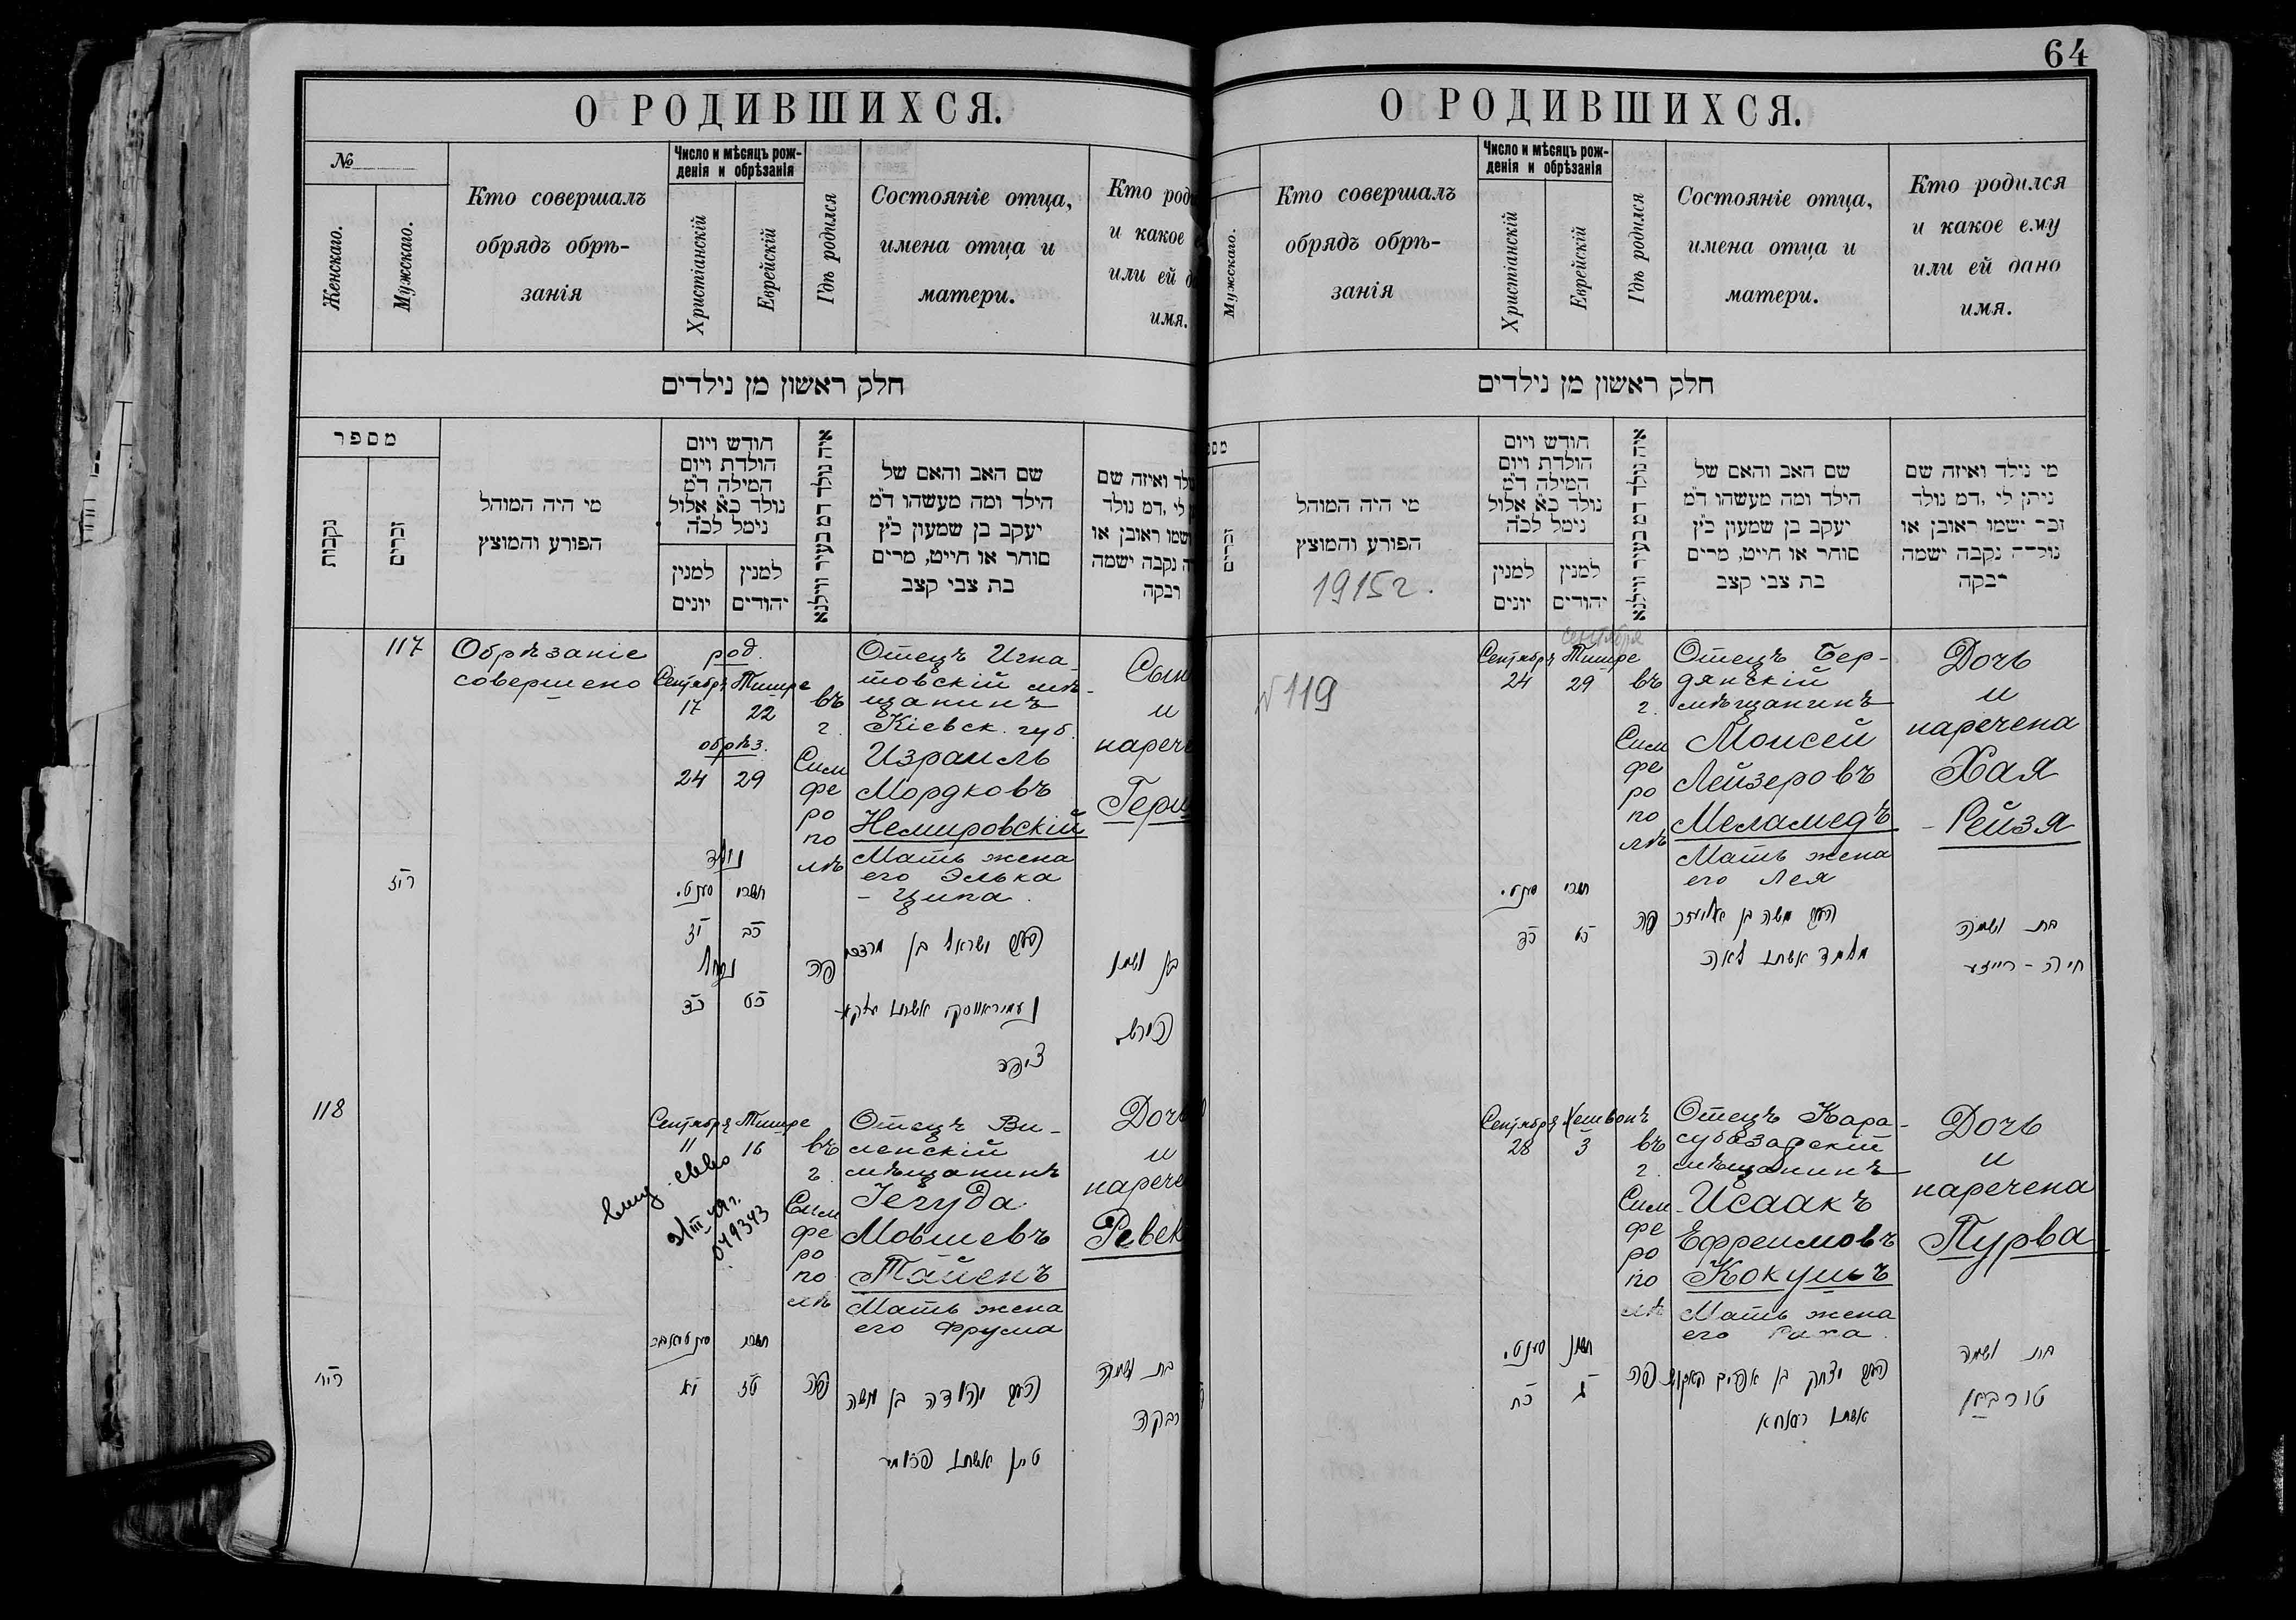 64
О РОДИВШИХСЯ.
№
Женскаго.
Мужскаго.
Кто совершалъ
обрядъ обрѣ-
занія
Число и мѣсяцъ рож-
денія и обрѣзанія
Христіанскій
Еврейскій
Гдѣ родился
Состояніе отца,
имена отца и
матери.
Кто род
и какое
или ей д
имя.
חלק ראשון מן נילדים
מספר
נקבות
זכרים
מי היה המוהל
הפורע והמוצץ
חודש ויום
הולדת ויום
המילה ד"מ
נולד כ"א אלול
נימל לכ"ה
למנין
יונים
למנין
יהודים
איה נולד דמ בעיר ווילנא
שם האב והאם של
הילד ומה מעשהו ד"מ
יעקב בן שמעון כ"ץ
סוחר או חייט, מרים
בת צבי קצב
לד ואיזה שם
לי ,דמ נולד
ישמו ראובן או
ה נקבה ישמה
רבקה
117
Обрѣзаніе
совершено
род.
Сентябрь Тишре
17 22
обрѣз.
24 29
въ
г.
Сим
фе
ро
по
лѣ
Отецъ Игна-
товскій мѣ-
щанинъ
Кіевск. губ.
Израиль
Мордковъ
Немировскій
Мать жена
его Элька
- Ципа.
Сын
и
нарече
Герш
קיז
נולד
תשרי
כב יז
נימול
כט כד
פה
ישראל בן מרדכי
אשתו עלקע
ציפע
בן ושמו
הירש
118
Сентября Тишре
11 16
выд. св-во
21/III 49г.
049343
въ
г.
Сим
фе
ро
по
лѣ
Отецъ Ви-
ленскій
мѣщанинъ
Іегуда
Мовшевъ
Тайенъ
Мать жена
его Фрума
Дочь
и
нарече
Ревек
קיח
תשרי
טז יא
פה
יהודה בן משה
אשתו פרומע
בת ושמה
רבקה
О РОДИВШИХСЯ.
Мужскаго.
Кто совершалъ
обрядъ обрѣ-
занія
Число и мѣсяцъ рож-
денія и обрѣзанія
Христіанскій
Еврейскій
Гдѣ родился
Состояніе отца,
имена отца и
матери.
Кто родился
и какое ему
или ей дано
имя.
חלק ראשון מן נילדים
מספ
זכרים
מי היה המוהל
הפורע והמוצץ
1915 г.
חודש ויום
הולדת ויום
המילה ד"מ
נולד כ"א אלול
נימל לכ"ה
למנין
יונים
למנין
יהודים
איה נולד דמ בעיר ווילנא
שם האב והאם של
הילד ומה מעשהו ד"מ
יעקב בן שמעון כ"ץ
סוחר או חייט, מרים
בת צבי קצב
מי נילד ואיזה שם
ניתן לי ,דמ נולד
זכר ישמו ראובן או
נולדה נקבה ישמה
רבקה
№119
сентября
Сентябрь Тишре
24 29
въ
г.
Сим
фе
ро
по
лѣ
Отецъ Бер-
дянскій
мѣщанинъ
Моисей
Лейзеровъ
Меламедъ
Мать жена
его Лея
Дочь
и
наречена
Хая
- Рейзя
תשרי
כט כד
פה
משה בן אליעזר
מלמד אשתו לאה
בת ושמה
חיה - רייזע
Сентября Хешвонъ
28 3
въ
г.
Сим
фе
ро
по
лѣ
Отецъ Кара-
субазарскій
мѣщанинъ
Исаакъ
Ефреимовъ
Кокушъ
Мать жена
его Раха
Дочь
и
наречена
Пурва
חשון
ג כח
פה
יצחק בן אפרים
אשתו
בת ושמה